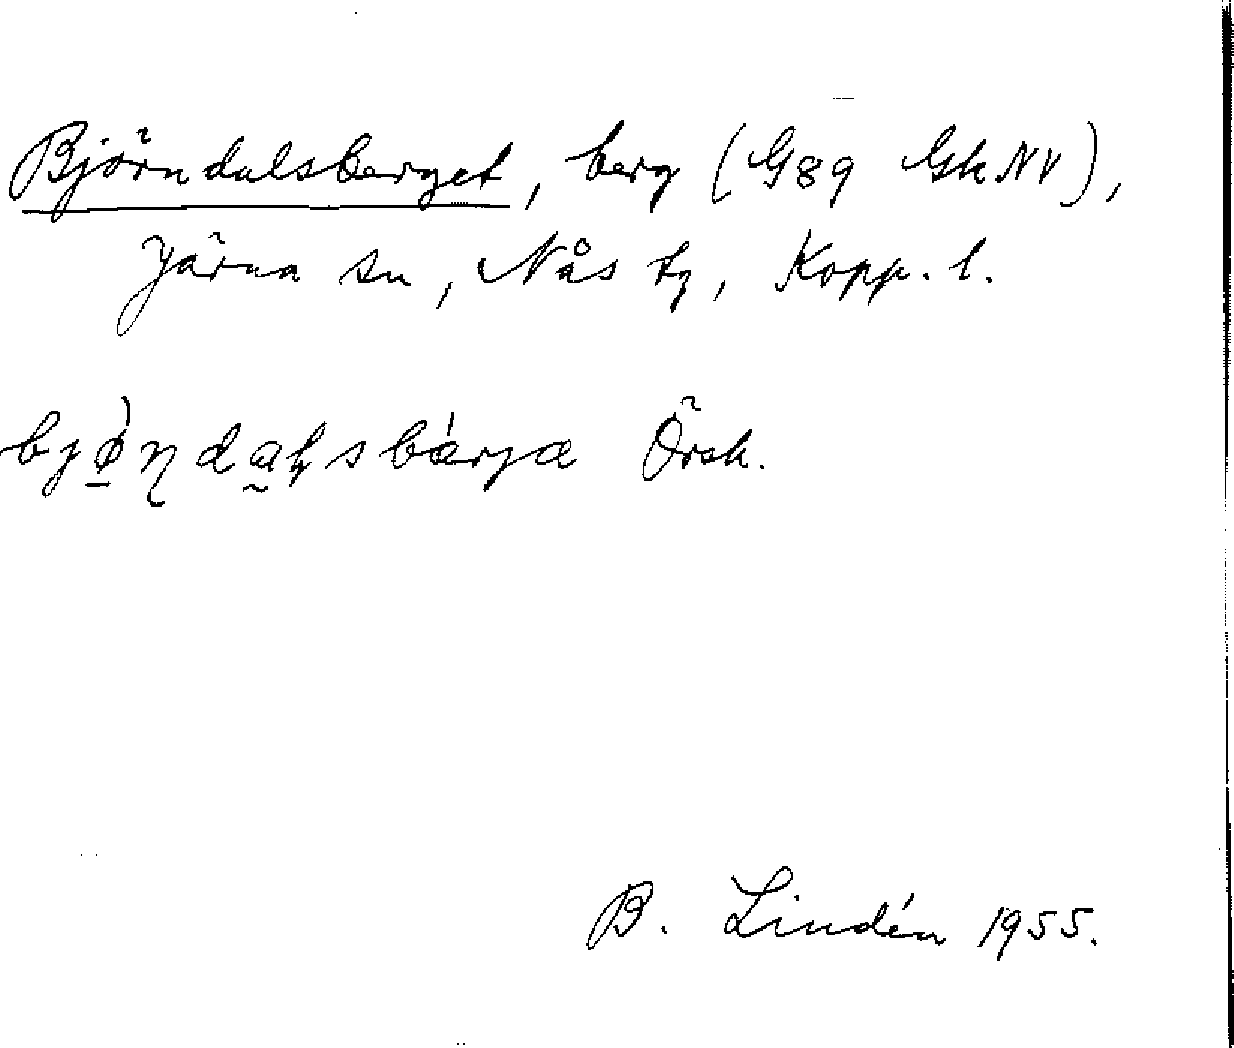 Björndalsberget, berg (G89 GkNV),
Järna sn, Nås tg, Kopp. l.
Örsk.
B. Lindén 1955.